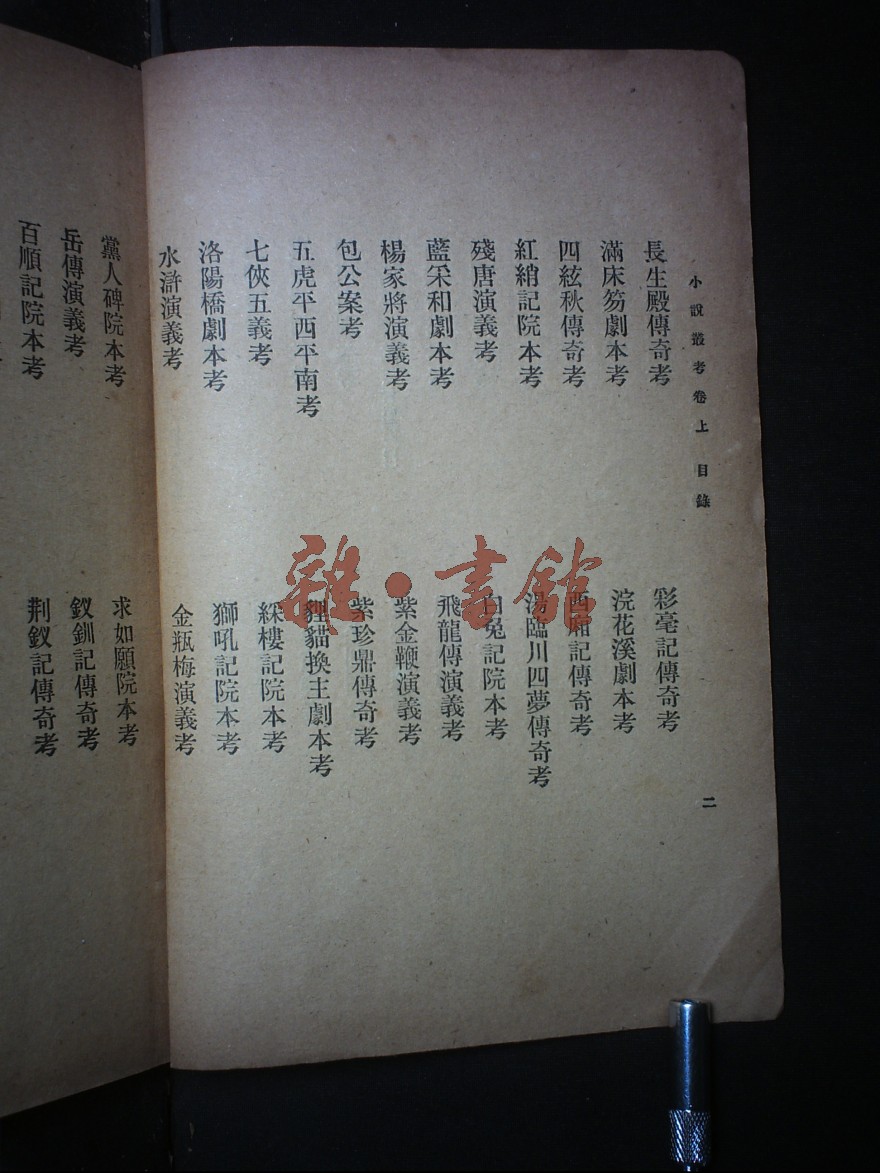 小說叢考卷上 目錄
二
長生殿傳奇考
彩毫記傳奇考
滿床笏劇本考
浣花溪劇本考
四絃秋傳奇考
西廂記傳奇考
紅綃記院本考
湯臨川四夢傳奇考
殘唐演義考
白兔記院本考
藍采和劇本考
飛龍傳演義考
楊家將演義考
紫金鞭演義考
包公案考
紫珍鼎傳奇考
五虎平西平南考
狸貓換主劇本考
七俠五義考
綵樓記院本考
洛陽橋劇本考
獅吼記院本考
水滸演義考
金瓶梅演義考
黨人碑院本考
求如願院本考
岳傳演義考
釵釧記傳奇考
百順記院本考
荆釵記傳奇考
雜·書館